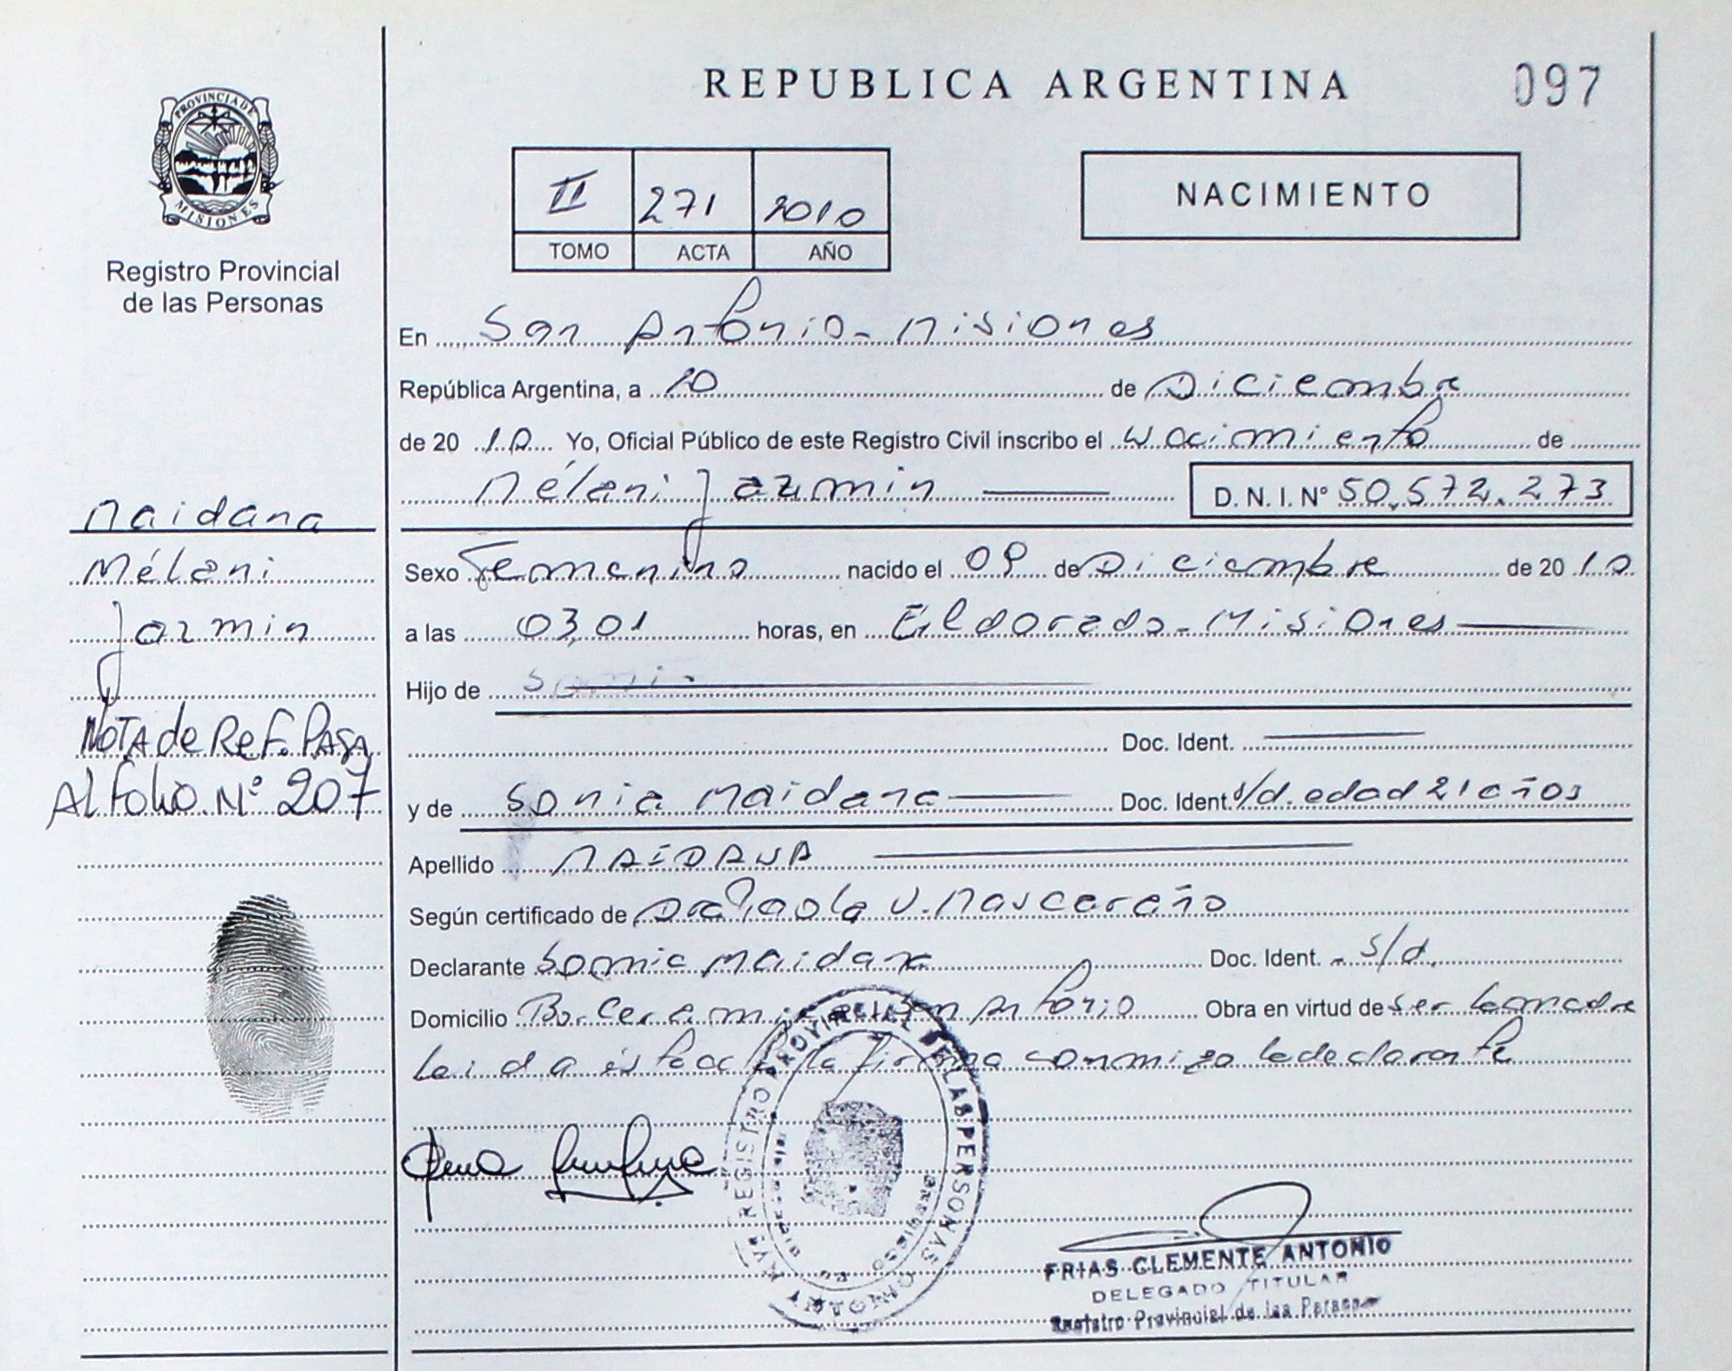 PROVINCIA DE
MISIONES
Registro Provincial
de las Personas
REPUBLICA ARGENTINA
097
II 271 2010
TOMO ACTA AÑO
NACIMIENTO
En San Antonio - Misiones
República Argentina, a 10 de Diciembre
de 20 10 Yo, Oficial Público de este Registro Civil inscribo el Nacimiento de
Mélani Jazmin D. N. I. N° 50.572.273
Maidana
Mélani
Jazmin
Nota de Ref. Pasa
Al Folio N° 207
Sexo Femenino nacido el 09 de Diciembre de 20 10
a las 03,01 horas, en Eldorado - Misiones
Hijo de
Doc. Ident.
y de Sonia Maidana Doc. Ident. s/d. edad 21 años
Apellido MAIDANA
Según certificado de V. Mascareño
Declarante Sonia Maidana Doc. Ident. - s/d.
Domicilio San Antonio Obra en virtud de ser la madre
leida la firma conmigo la declarante
REGISTRO PROVINCIAL DE LAS PERSONAS
FRIAS CLEMENTE ANTONIO
DELEGADO TITULAR
Registro Provincial de las Personas